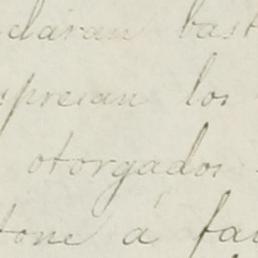 daran bast
los
otorgados
tone á fa